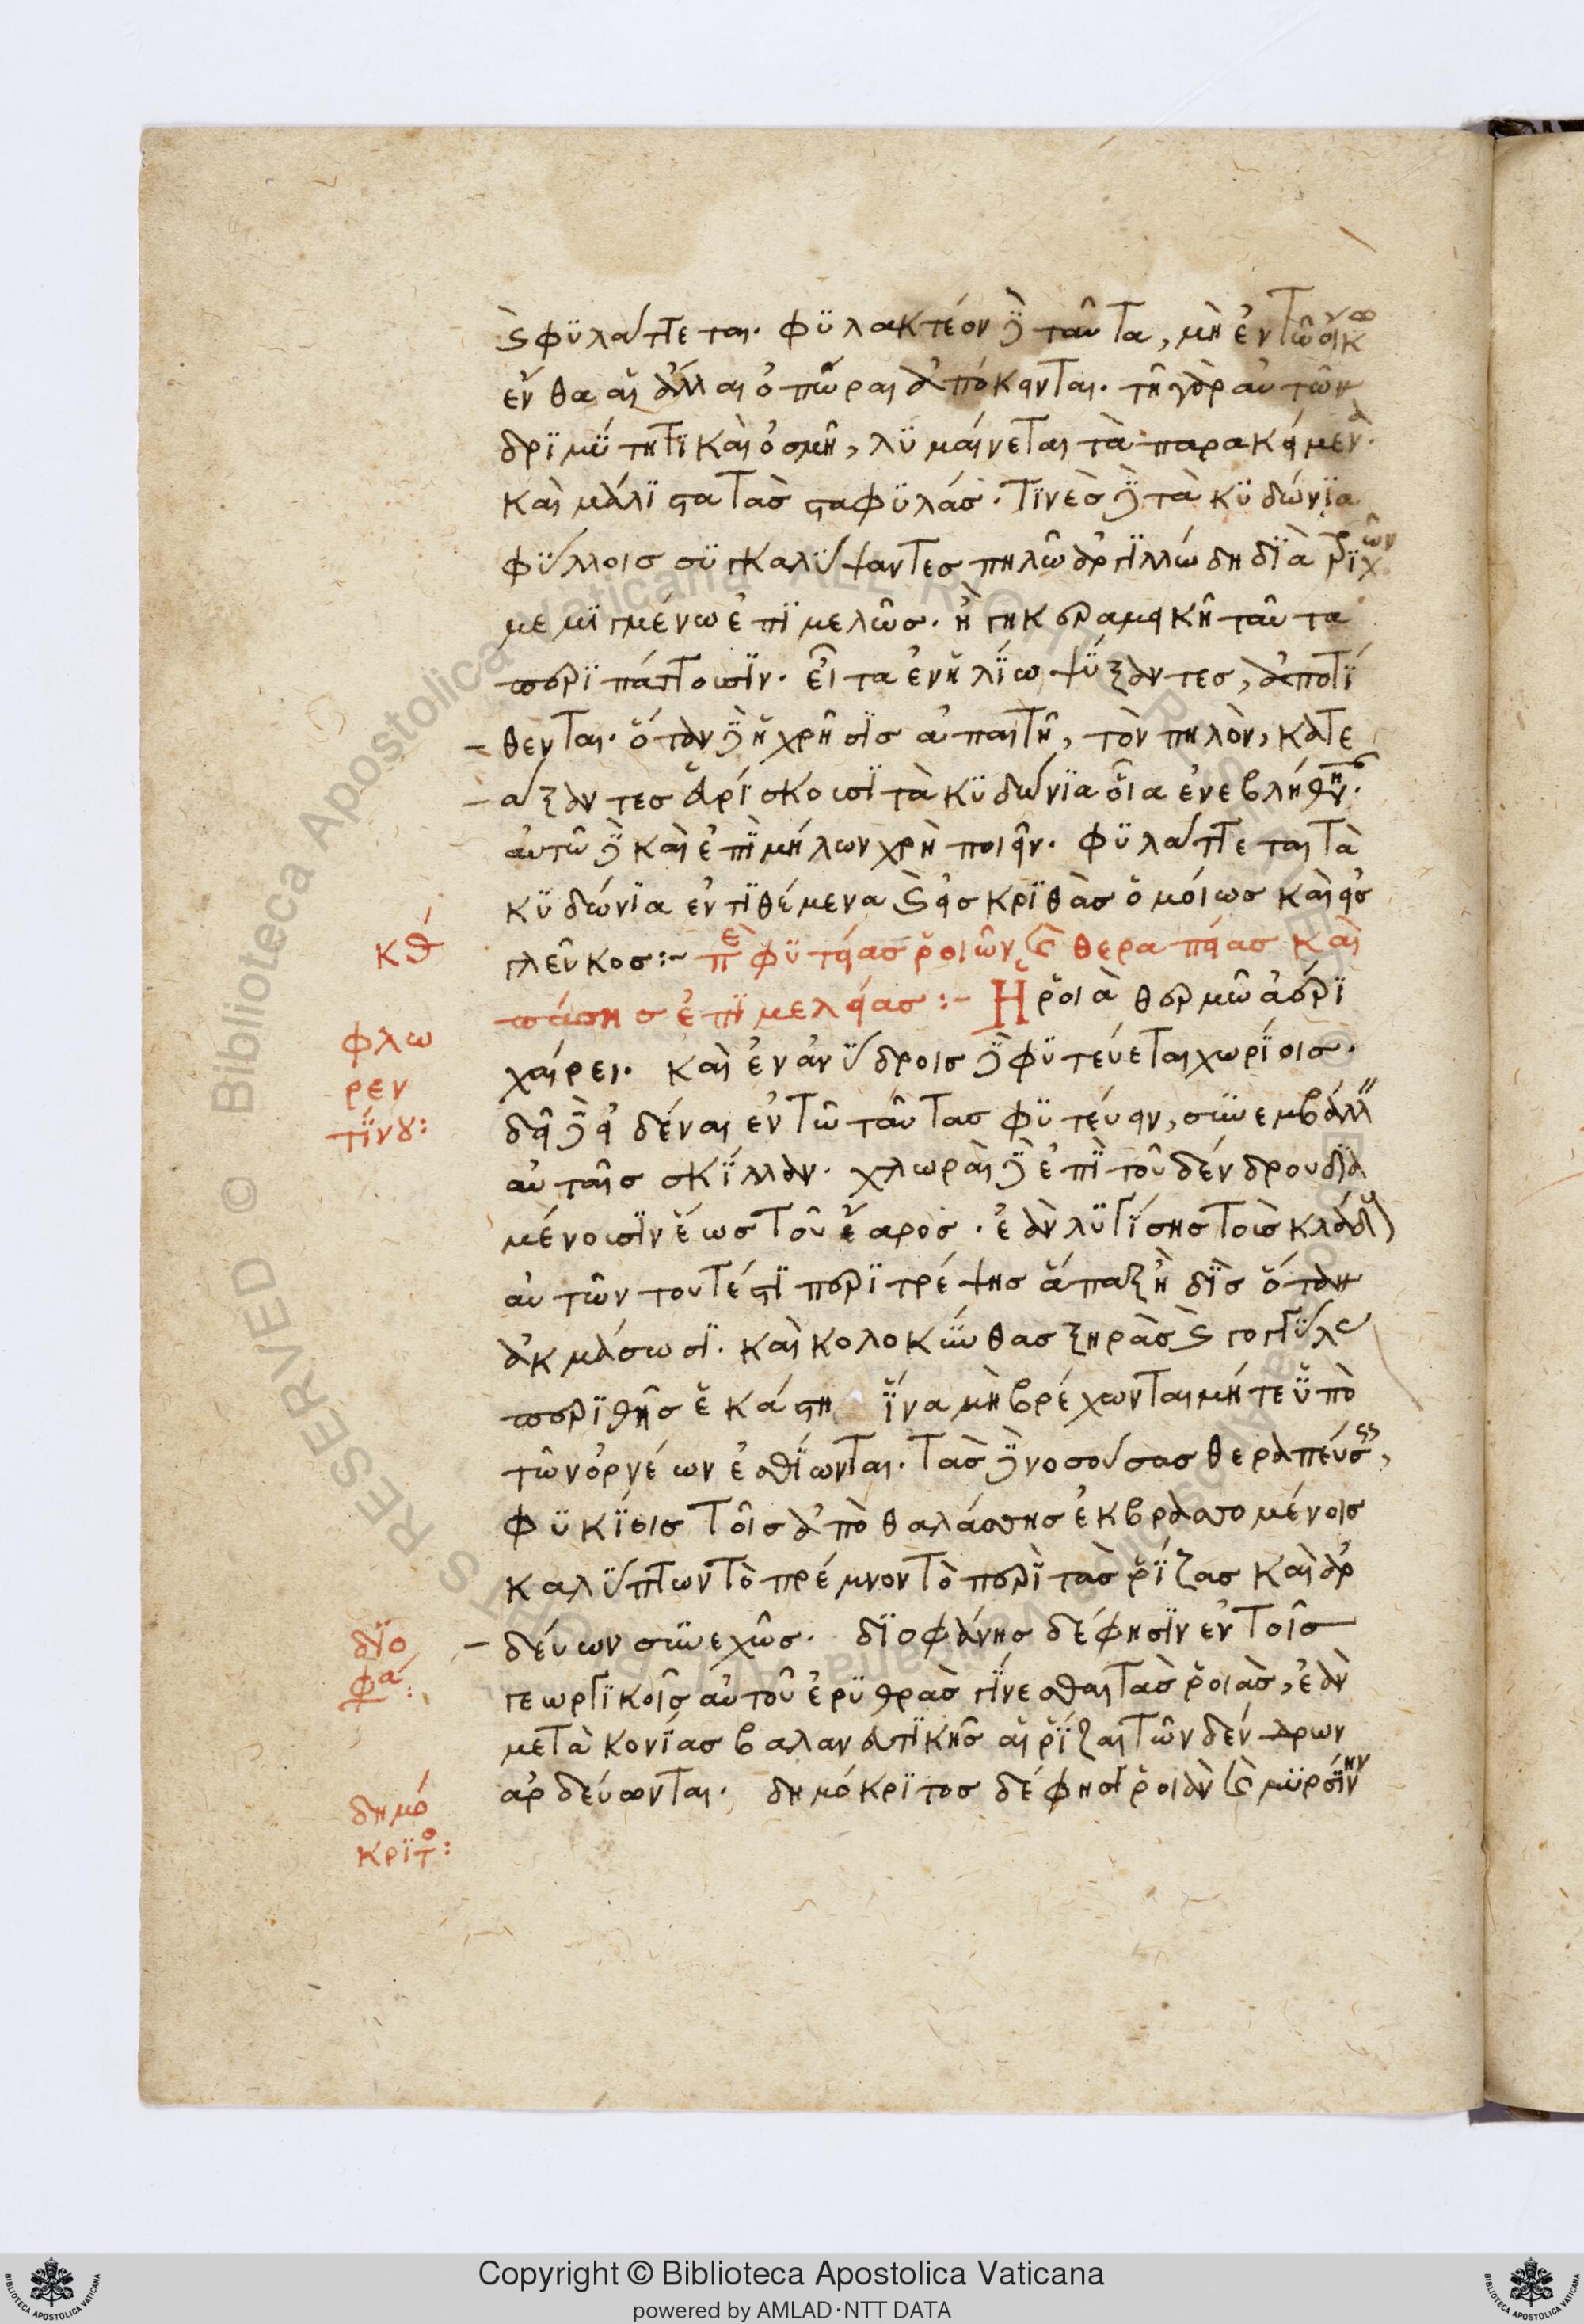 καὶ φυλάττεται. φυλακτέον δὲ ταῦτα, μὴ ἐν τῶ οἴκω
ἔνθα αἱ ἄλλαι ὀπῶραι ἀπόκεινται. τῆ γὰρ αὐτῶν
δριμύτητι καὶ ὀσμῆ, λυμαίνεται τὰ παρακείμενα.
καὶ μάλιστα τὰσ σταφυλάσ. τινὲσ δὲ τὰ κυδώνια
φύλλοισ συγκαλύψαντεσ πηλῶ ἀργιλλώδη διὰ τριχῶν
μεμιγμένω ἐπιμελῶσ. ἢ γῆ κεραμεικῆ ταῦτα
περιπάττουσιν. εἶτα ἐν ἡλίω ψύξαντεσ, ἀποτί
θενται. ὅταν δὲ ἡ χρῆσισ ἀπαιτῆ, τὸν πηλὸν, κατε
άξαντεσ εὑρίσκουσι τὰ κυδώνια οἷα ἐνεβλήθην.
αὐτῶ δὲ καὶ ἐπὶ μήλων χρὴ ποιεῖν. φυλάττεται τὰ
κυδώνια ἐντιθέμενα καὶ εἰσ κριθὰσ ὁμοίωσ καὶ εἰσ
κθ γλεῦκοσ:~ περὶ φυτείασ ῥοιῶν καὶ θεραπείασ καὶ
πάσησ ἐπιμελείασ:~ Ἡ ῥοιὰ θερμῶ ἀέρι
φλω
ρεν
τίνου: χαίρει. καὶ ἐν ἀνύδροισ δὲ φυτεύεται χωρίοισ.
δεῖ δὲ εἰδέναι ἐν τῶ ταύτασ φυτεύειν, συνεμβάλλειν
αὐταῖσ σκίλλαν. χλωραὶ δὲ ἐπὶ τοῦ δένδρου δια
μένουσιν ἕωσ τοῦ ἔαροσ. ἐὰν λυγίσησ τοὺσ κλάδουσ
αὐτῶν τουτέστι περιτρέψησ ἅπαξ ἢ δὶσ ὅταν
ἀκμάσωσι. καὶ κολοκύνθασ ξηρὰσ καὶ γογγύλασ
περιθῆσ ἑκάστη ἵνα μὴ βρέχωνται μήτε ὑπὸ
τῶν ὀρνέων ἐσθίωνται. τὰσ δὲ νοσούσασ θεραπεύσεισ,
φυκίοισ τοῖσ ἀπὸ θαλάσσησ ἐκβρασσομένοισ
καλύπτων τὸ πρέμνον τὸ περὶ τὰσ ῥίζασ καὶ ἀρ
διο
φά: δεύων συνεχῶσ. διοφάνησ δέ φησιν ἐν τοῖσ
γεωργικοῖσ αὐτοῦ ἐρυθρὰσ γίνεσθαι τὰσ ῥοιὰσ, ἐὰν
μετὰ κονίασ βαλανευτικῆσ αἱ ῥίζαι τῶν δένδρων
δημό
κριτο: ἀρδεύωνται. δημόκριτοσ δέ φησι ῥοιὰν καὶ μυρσίνην
Copyright © Biblioteca Apostolica Vaticana
powered by AMLAD·NTT DATA